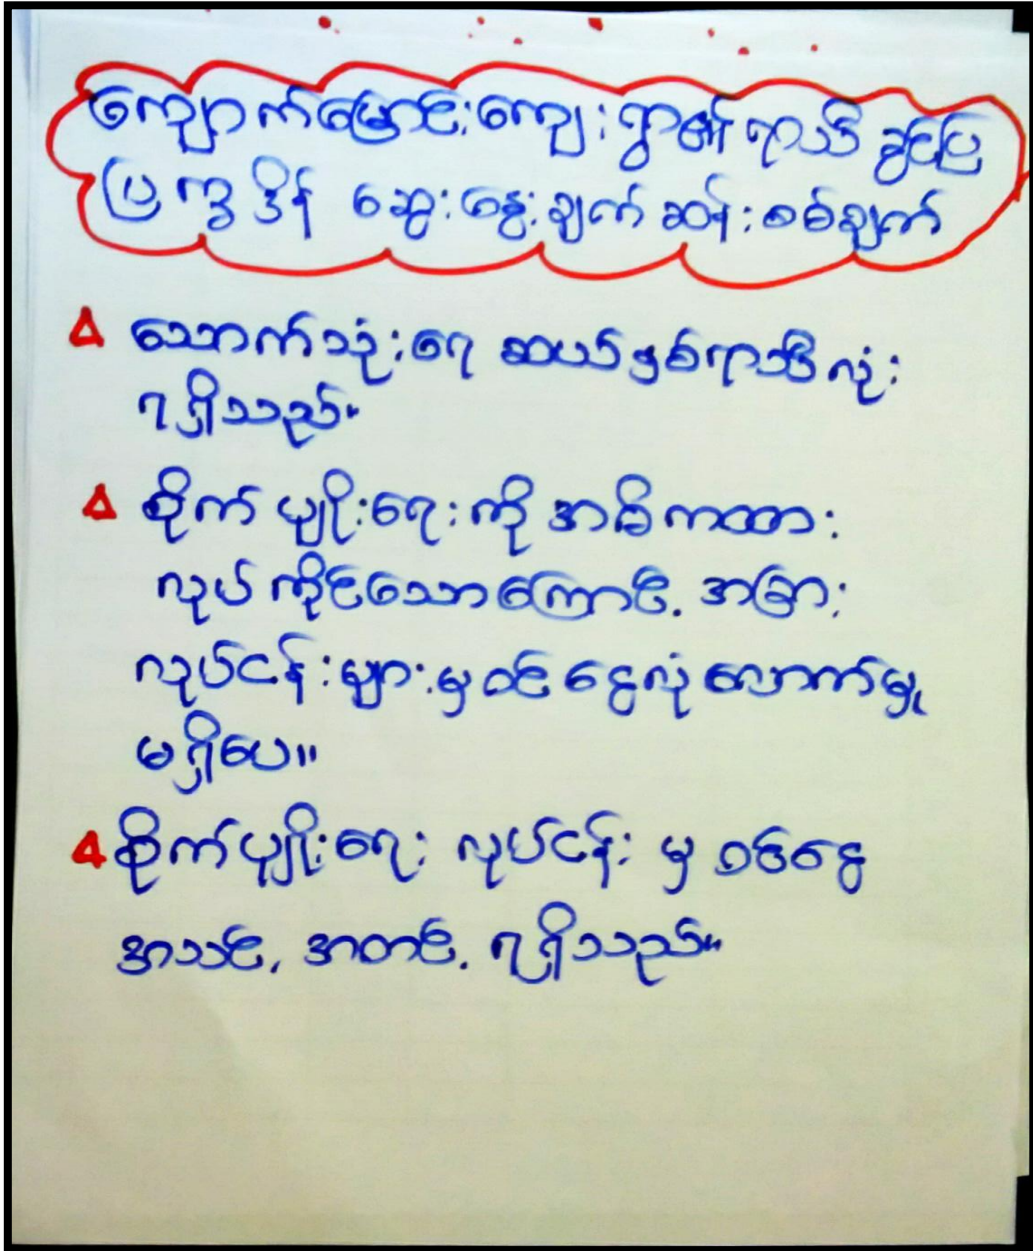 ကျောက်မြောင်းကျေးရွာ၏ ရာသီ ခွင်ပြ
ပြက္ခဒိန် ဆွေးနွေးချက် ဆန်းစစ်ချက်
သောက်သုံးရေ ဆယ်နှစ်ရာသီလုံး
ရရှိသည်။
စိုက်ပျိုးရေးကို အဓိကထား
လုပ်ကိုင်သောကြောင့် အခြား
လုပ်ငန်းများမှ ဝင်ငွေလုံလောက်မှု
မရှိပေ။
စိုက်ပျိုးရေး လုပ်ငန်း မှ ဝင်ငွေ
အသင့်အတင့် ရရှိသည်။